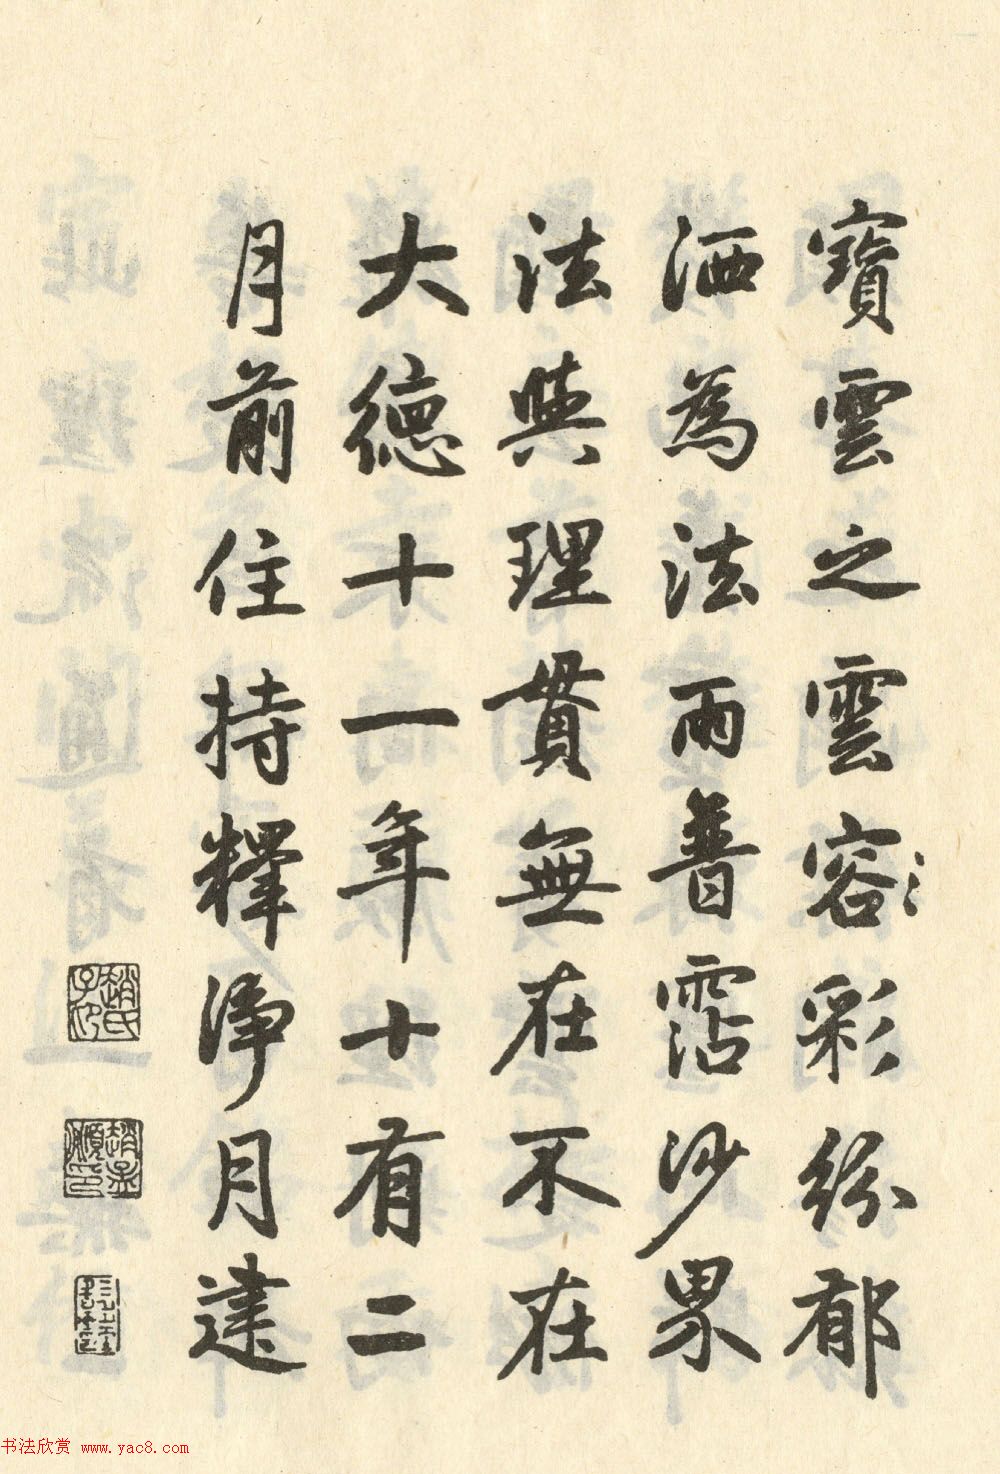 寶雲之雲容〻彩紛郁
洒為法雨普霑沙界
法與理貫無在不在
大德十一年十有二
月前住持釋淨月建
趙氏子昂
趙孟頫印
书法欣赏 www.yac8.com